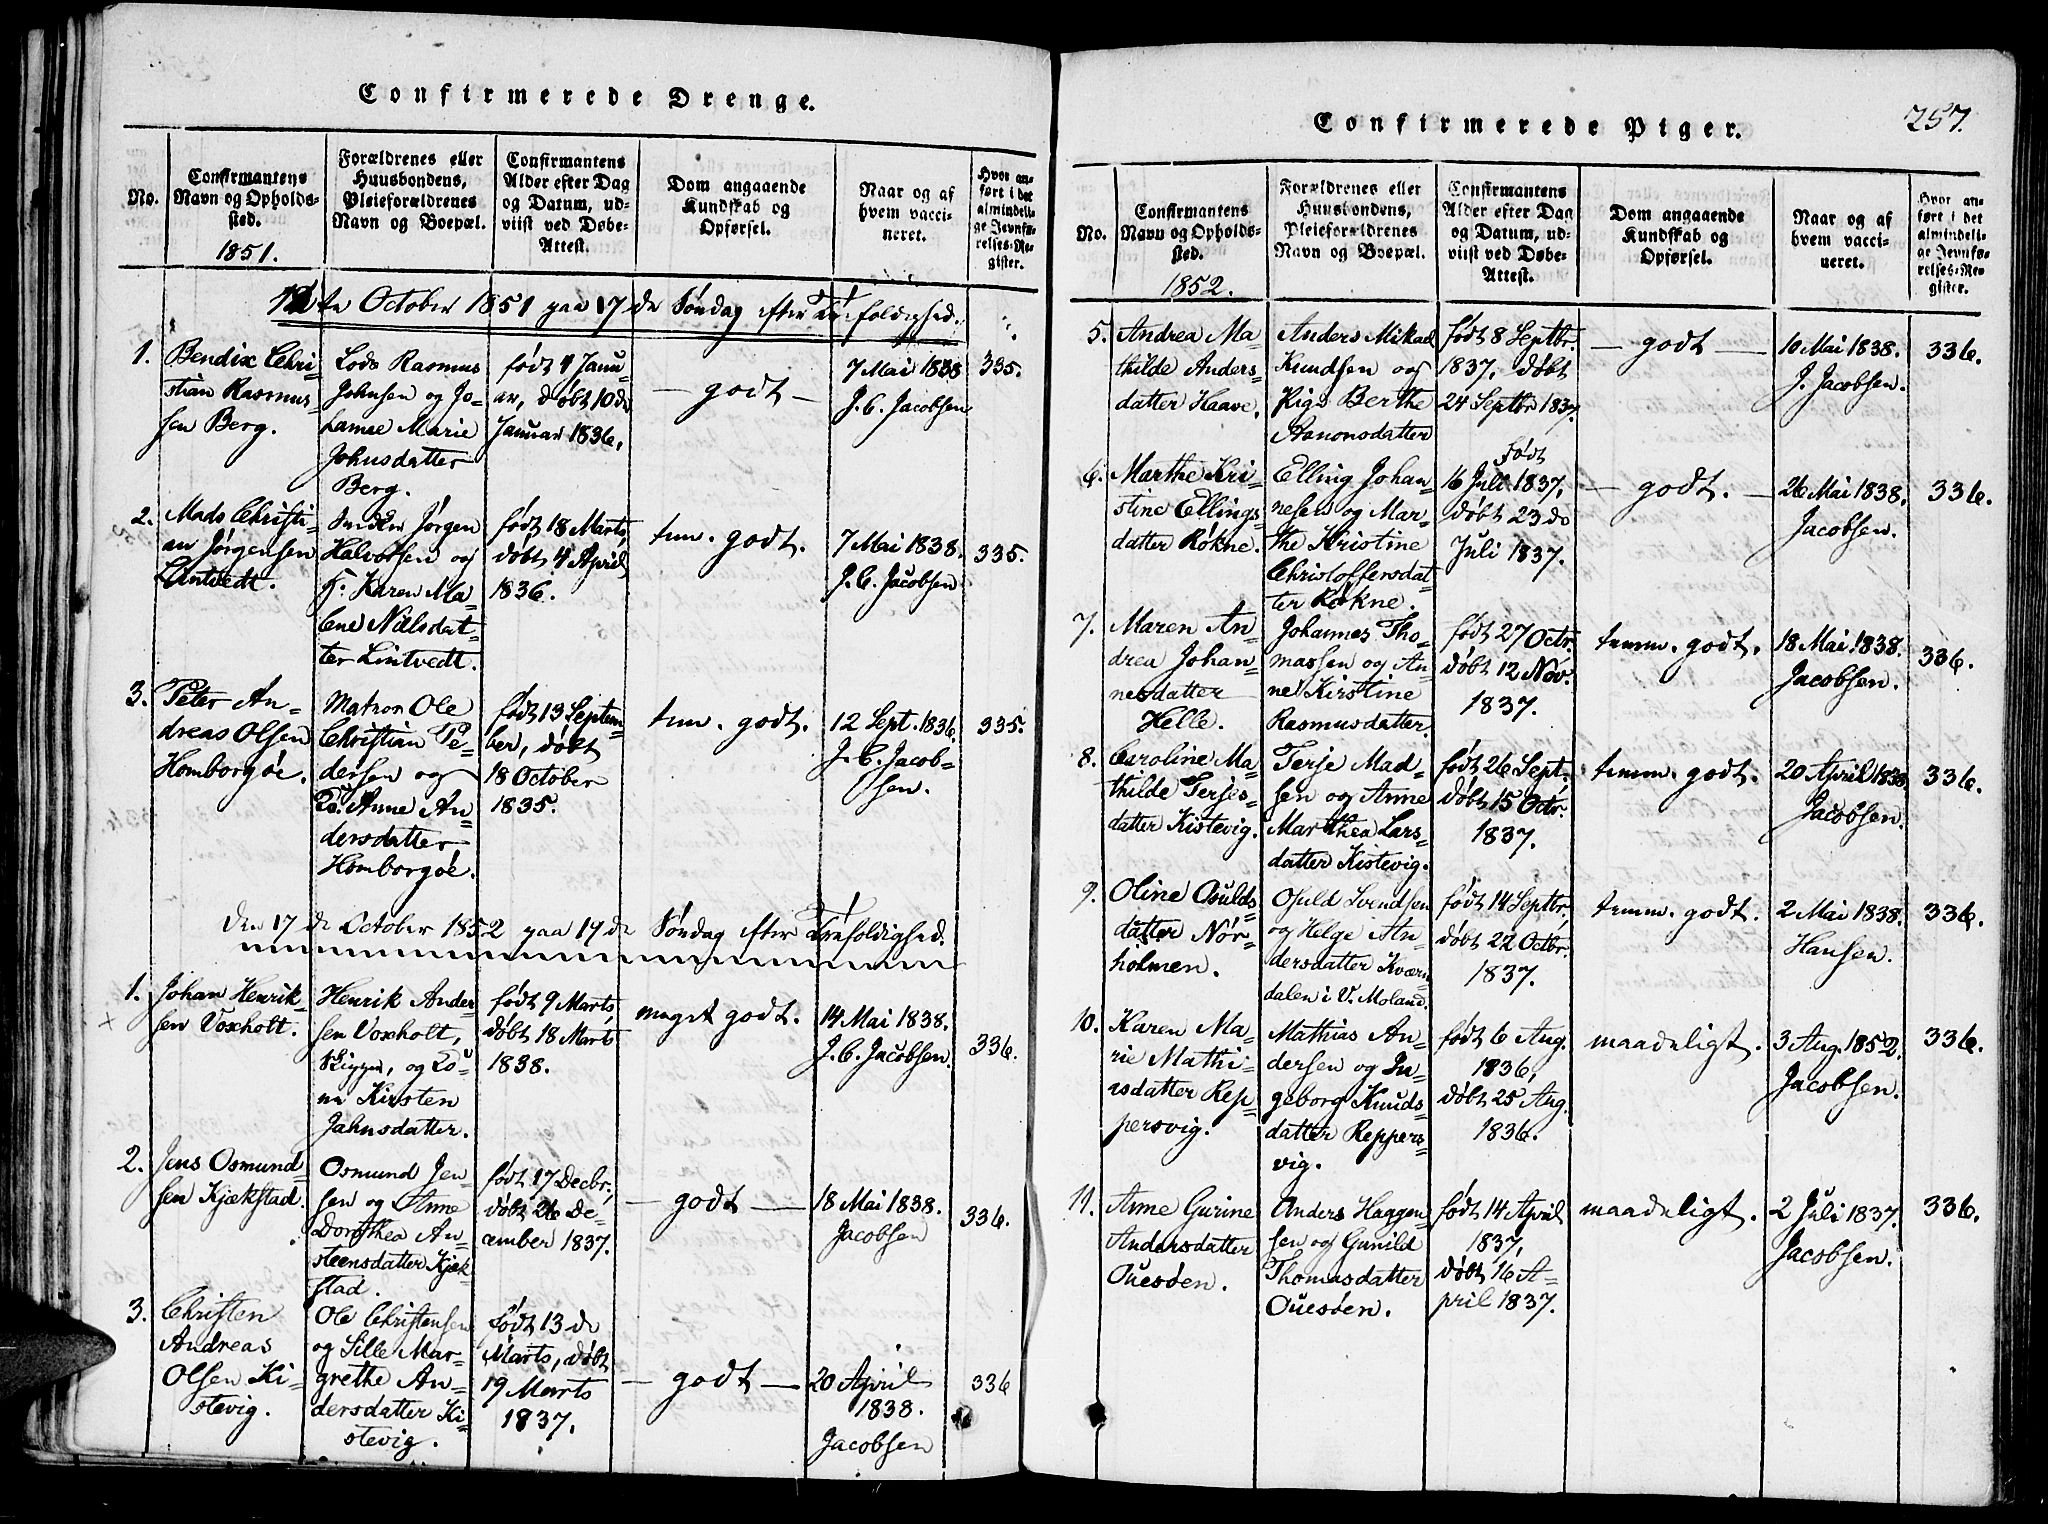 Confirmerede Drenge.
No.
Confirmantens
Navn og Opholds-
sted.
1851.
Forældrenes eller
Huusbondens,
Pleieforældrenes
Navn og Boepæl.
Confirmantens
Alder efter Dag
og Datum, ud-
viist ved Døbe-
Attest.
Dom angaaende
Kundskab og
Opførsel.
Naar og af
hvem vacci-
neret.
Hvor an-
ført i det
almindeli-
ge Jevnfø-
relses-Re-
gister.
October 1851 paa 17de Søndag efter Trefoldighed.
1.
Bendix Chri-
stian Rasmus-
sen Berg.
Lods Rasmus
Johnsen og Jo-
hanne Marie
Johnsdatter
Berg.
født 4 Janu-
ar, døbt 10de
Januar 1836,
— godt —
7 Mai 1838
J. C. Jacobsen
335.
2.
Mads Christi-
an Jørgensen
Lintvedt.
Jørgen
Halvorsen og
K. Karen Ma-
lene Nielsdat-
ter Lintvedt.
født 18 Marts,
døbt 4 April
1836.
tem. godt.
7 Mai 1838.
J. C. Jacobsen
335.
3.
Peter An-
dreas Olsen
Homborgøe.
Matros Ole
Christian Pe-
dersen og
Anne An-
dersdatter
Homborgøe.
født 13 Septem-
ber, døbt
18 October
1835.
tem. godt.
12 Sept. 1836.
J. C. Jacob-
sen.
335.
Den 17de October 1852 paa 19de Søndag efter Trefoldighed.
1.
Johan Henrik-
sen Voxholt.
Henrik Ander-
sen Voxholt,
og Ko-
ne Kirsten
Jahnsdatter.
født 9 Marts,
døbt 18 Marts
1838.
meget godt.
14 Mai 1838.
J. C. Jacobsen.
336.
2.
Jens Osmund-
sen Kjækstad.
Osmund Jen-
sen og Anne
Dorothea An-
steensdatter Kjæk-
stad.
født 17 Decbr,
døbt 26 De-
cember 1837.
— godt —
18 Mai 1838.
Jacobsen
336.
3.
Christen
Andreas
Olsen Ki-
stevig.
Ole Christensen
og Sille Mar-
grethe An-
dersdatter Ki-
stevig.
født 13 de
Marts, døbt
19 Marts
1837.
— godt —
20 April
1838.
Jacobsen
336
Confirmerede Piger.
257.
No.
Confirmantens
Navn og Opholds-
sted.
1852.
Forældrenes eller
Huusbondens,
Pleieforældrenes
Navn og Boepæl.
Confirmantens
Alder efter Dag
og Datum, ud-
viist ved Døbe-
Attest.
Dom angaaende
Kundskab og
Opførsel.
Naar og af
hvem vacci-
neret.
Hvor an-
ført i det
almindeli-
ge Jevnfø-
relses-Re-
gister.
5.
Andrea Ma-
thilde Anders-
datter Haave.
Anders Mikael
Knudsen og
Pige Berthe
Aanonsdatter
født 8 Septbr.
1837. døbt
24 Septbr 1837.
— godt —
10 Mai 1838.
J. Jacobsen.
336.
6.
Marthe Kri-
stine Ellings-
datter Røkne.
Elling Johan-
nesen og Mar-
the Kristine
Christoffersdat-
ter Røkne.
født
16 Juli 1837,
døbt 23 de
Juli 1837.
— godt. —
26 Mai 1838.
Jacobsen.
336.
7.
Maren An-
drea Johan-
nesdatter
Helle.
Johannes Tho-
massen og An-
ne Kirstine
Rasmusdatter.
født 27 Octr.
døbt 12 Nov.
1837.
temm. godt.
18 Mai 1838.
Jacobsen.
336.
8.
Caroline Ma-
thilde Terjes-
datter Kistevig.
Terje Mad-
sen og Anne
Marthea Lars-
datter Kistevig.
født 26 Sept.
døbt 15 Octr.
1837.
temm. godt.
20 April 1838
Jacobsen.
336.
9.
Oline Osulds-
datter Nør-
holmen.
Osuld Svendsen
og Helge An-
dersdatter Kværn-
dalen i V. Moland.
født 14 Septbr.
døbt 22 Octbr.
1837.
temm. godt.
2 Mai 1838.
Hansen.
336.
10.
Karen Ma-
rie Mathi-
asdatter Rep-
persvig.
Mathias An-
dersen og In-
geborg Knuds-
datter Reppers-
vig.
født 6 Aug.
1836,
døbt 25 Aug.
1836.
maadeligt.
3 Aug. 1852.
Jacobsen.
336.
11.
Anne Gurine
Andersdatter
Ouesøen.
Anders Haagen-
sen og Gunild
Thomasdatter
Ouesøen.
født 14 April
1837,
døbt 16 A-
pril 1837.
maadeligt.
2 Juli 1837.
Jacobsen.
336.